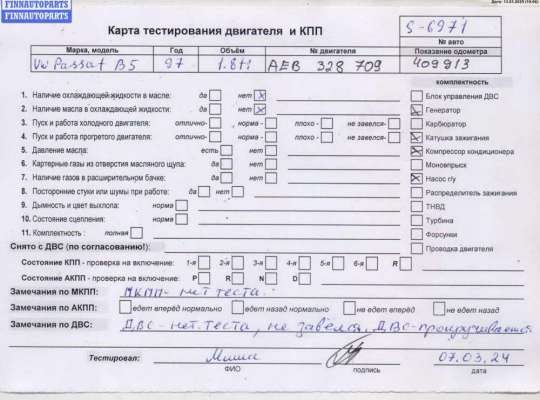 FINNAUTOPARTS
FINNAUTOPARTS
Карта тестирования двигателя и КПП
S-6971
№ авто
Марка, модель Год Объём № двигателя Показание одометра
VW Passat B5 97 1.8ti AEB 328 709 409913
комплектность
1. Наличие охлаждающей жидкости в масле: да нет x
2. Наличие масла в охлаждающей жидкости: да нет x
3. Пуск и работа холодного двигателя: отлично- норма - плохо - не завелся-
4. Пуск и работа прогретого двигателя: отлично- норма - плохо - не завелся-
5. Давление масла: есть нет
6. Картерные газы из отверстия масляного щупа: да нет
7. Наличие газов в расширительном бачке: да нет
8. Посторонние стуки или шумы при работе: да нет
9. Дымность и цвет выхлопа: норма
10. Состояние сцепления: норма
11. Комплектность: полная
Блок управления ДВС
x Генератор
Карбюратор
x Катушка зажигания
x Компрессор кондиционера
Моновпрыск
x Насос г/у
Распределитель зажигания
ТНВД
Турбина
Форсунки
Проводка двигателя
Снято с ДВС (по согласованию!):
Состояние КПП - проверка на включение: 1-я 2-я 3-я 4-я 5-я 6-я R
Состояние АКПП - проверка на включение: P R N D
Замечания по МКПП: МКПП - нет теста.
Замечания по АКПП: едет вперёд нормально едет назад нормально не едет вперёд не едет назад
Замечания по ДВС: ДВС - нет теста, не завёлся, ДВС - прокручивается
Тестировал: 07.03.24
ФИО подпись дата